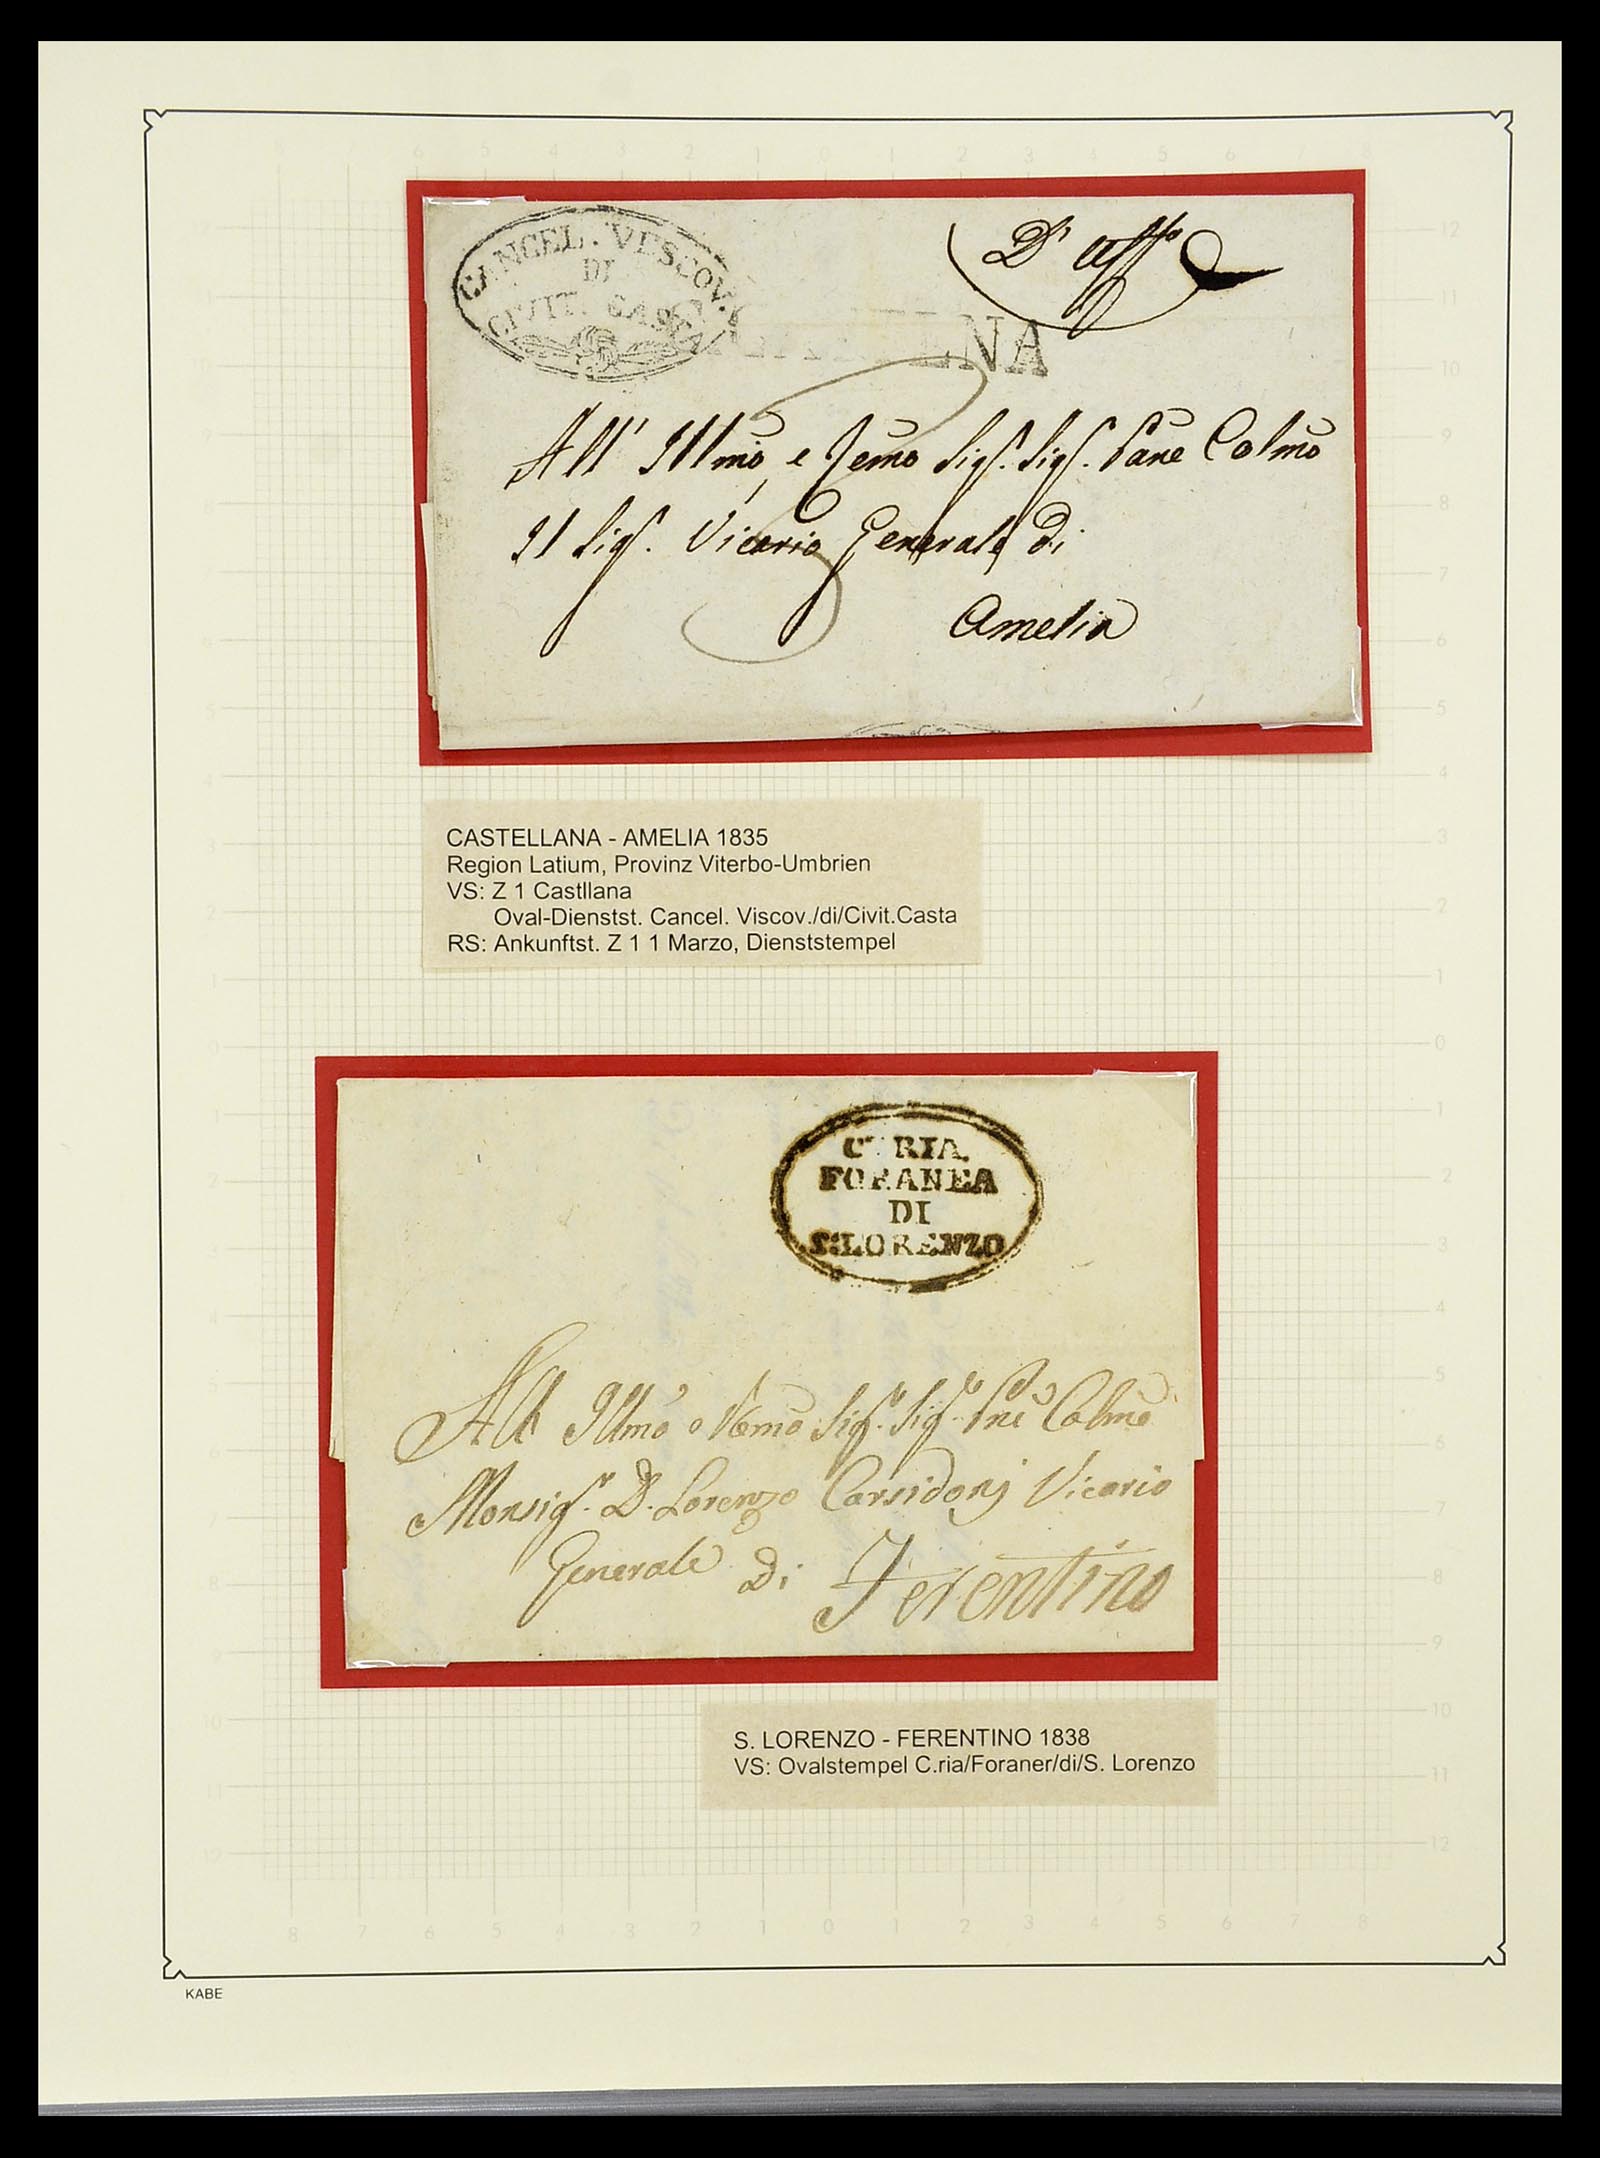 CANCEL. VESCOV.
DI
CIVIT. CAST
LLENA
D' Uff.o
All' Illmo, e Remo Sigr. Sigr. Pane Colmo
Il Sigr. Vicario Generale di
Amelia
CASTELLANA - AMELIA 1835
Region Latium, Provinz Viterbo-Umbrien
VS: Z 1 Castllana
Oval-Dienstst. Cancel. Viscov./di/Civit.Casta
RS: Ankunftst. Z 1 1 Marzo, Dienststempel
C RIA.
FORANEA
DI
S:LORENZO
All Illmo e Remo Sigr. Sigr. Pne Colmo
Monsigr. D. Lorenzo Carsidonj Vicario
Generale di Ferentino
S. LORENZO - FERENTINO 1838
VS: Ovalstempel C.ria/Foraner/di/S. Lorenzo
KABE